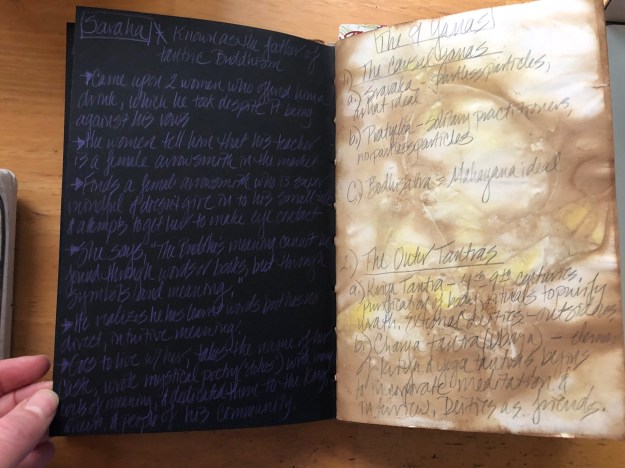 Saraha * Known as the father of
tantric Buddhism
Came upon 2 women who offered him a
drink, which he took despite it being
against his vows
The women tell him that his teacher
is a female arrowsmith in the market
Finds a female arrowsmith who is super
mindful & doesn't give in to his
attempts to get her to make eye contact
She says, "The Buddha's meaning cannot be
found through words or books, but through
symbols and meaning."
He realizes he has learned words but has no
direct, intuitive meaning.
Goes to live w/ her, takes the name of her
caste, wrote mystical poetry with many
levels of meaning, & dedicated them to the King,
Queen, & people of his community.
The 9 Yanas
1) The Causal Yanas
a) Sravaka - partless particles,
arhat ideal
b) Pratyeka - solitary practitioners,
no partless particles
c) Bodhisattva = Mahayana ideal
2) The Outer Tantras
a) Kriya Tantra - 4th-9th centuries,
purification of body, rituals to purify
wrath. External deities - outside
b) Charya tantra (Upaya) -
of kriya & yoga tantras begins
to incorporate meditation &
interview, Deities as friends.